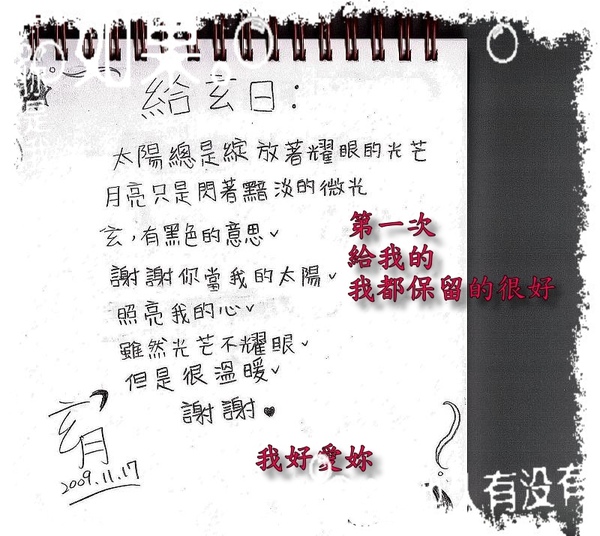 如果
給玄日：
太陽總是綻放著耀眼的光芒
月亮只是閃著黯淡的微光
玄，有黑色的意思✓
第一次
謝謝你當我的太陽✓
給我的
我都保留的很好
照亮我的心✓
雖然光芒不耀眼✓
但是很溫暖✓
謝謝♥
玄月
2009.11.17
我好愛妳
有没有